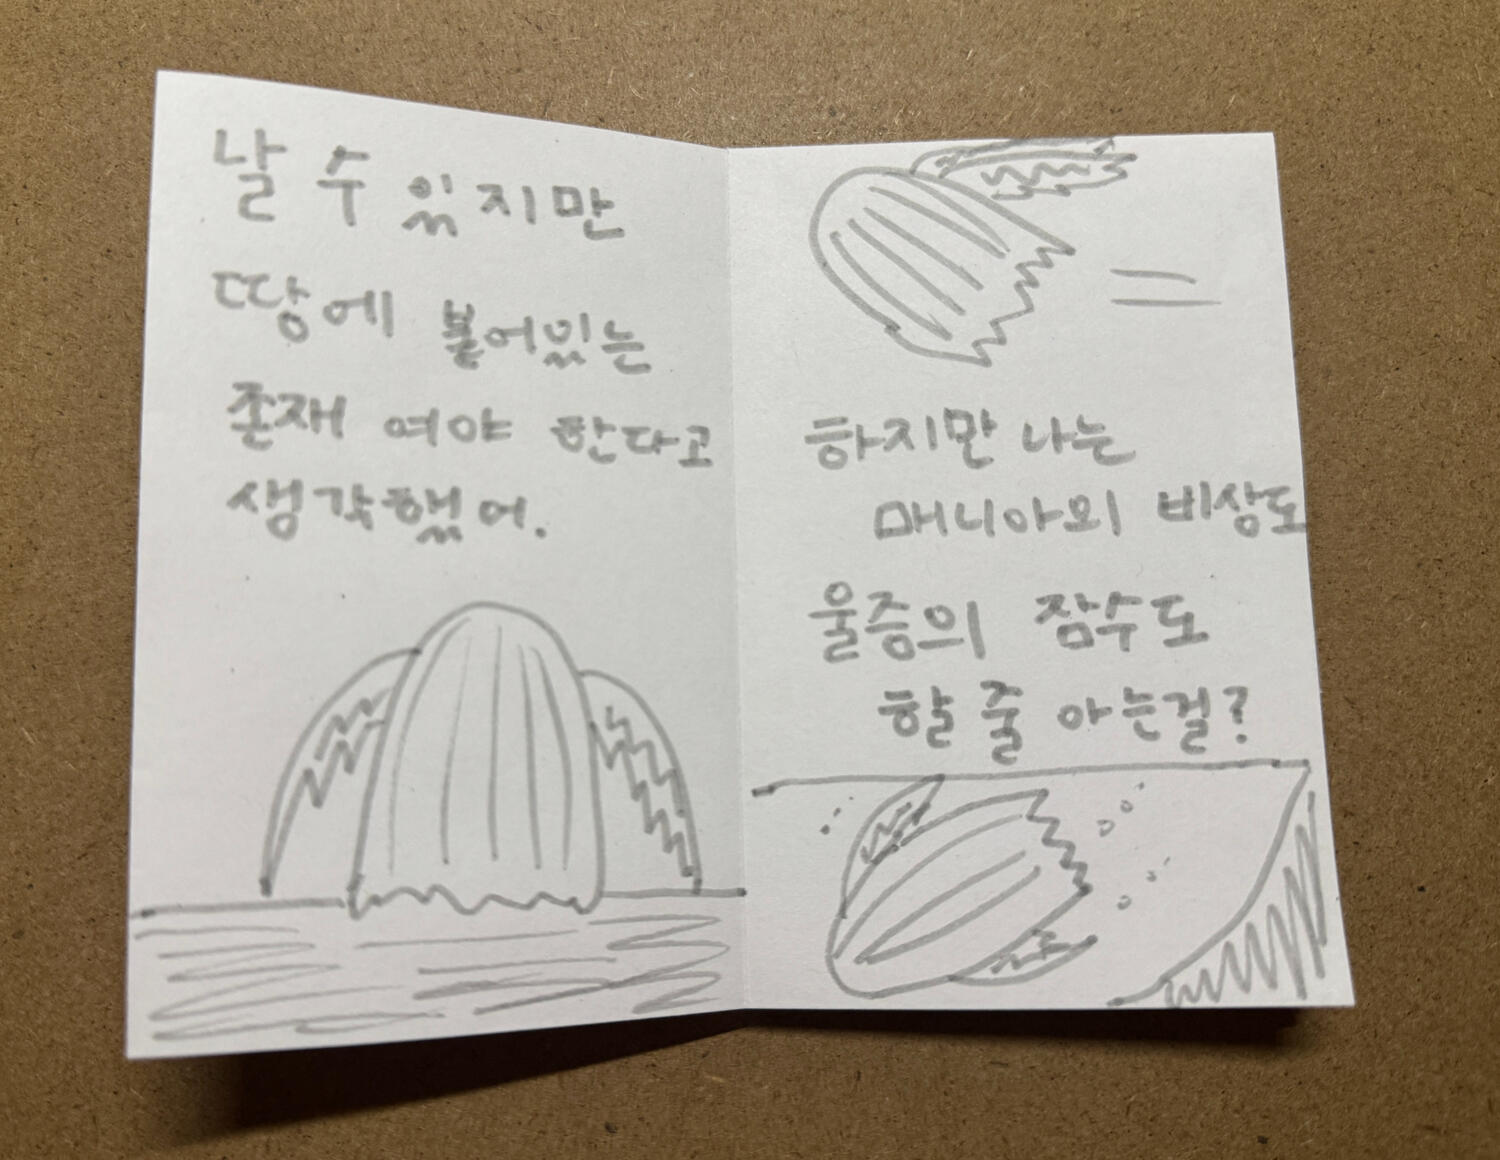 날 수 있지만
땅에 붙어있는
존재 여야 한다고
생각했어.
하지만 나는
매니아의 비상도
울증의 잠수도
할 줄 아는걸?